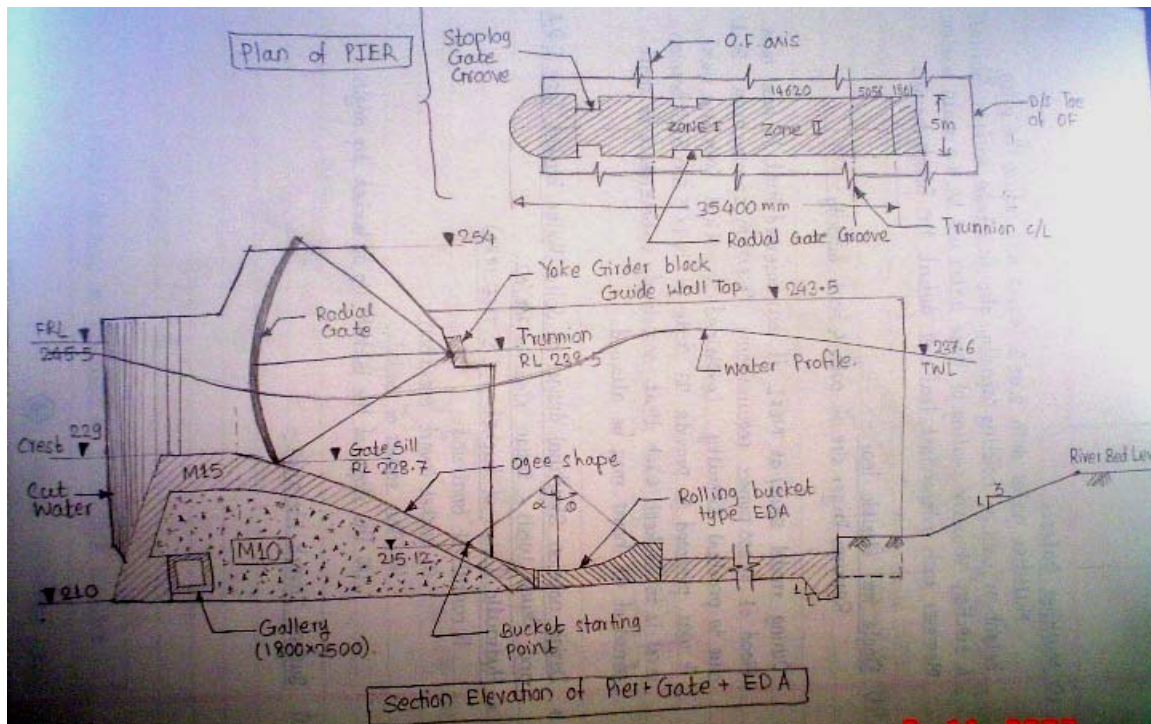 Plan of PIER
Stoplog
Gate
Groove
O.F. axis
14620
5056
1861
ZONE I
Zone II
5m
D/s Toe
of OF
35400 mm
Radial Gate Groove
Trunnion c/L
254
Yoke Girder block
Guide Wall Top
243.5
FRL
245.5
Radial
Gate
Trunnion
RL 238.5
Water Profile
237.6
TWL
Crest 229
Gate Sill
RL 228.7
Ogee shape
River Bed Lev
M15
Cut
Water
Rolling bucket
type EDA
α
Φ
3
1
M10
215.12
210
Gallery
(1800×2500)
Bucket starting
point
1
1
Section Elevation of Pier+Gate+EDA